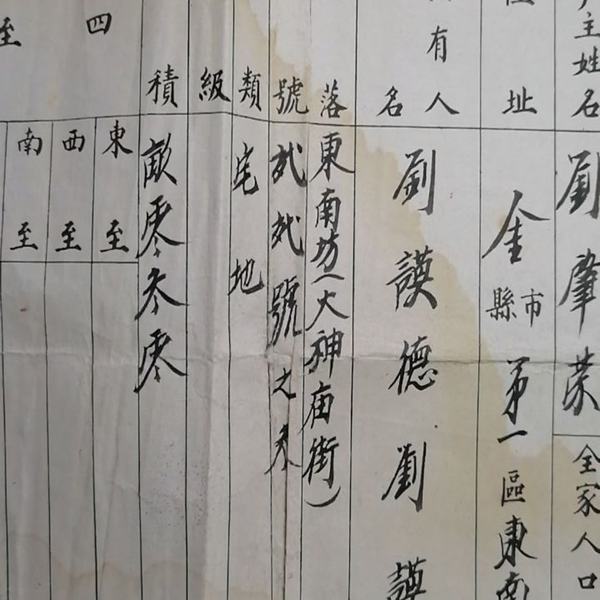 主姓名 劉肇荣 全家人口
址 金 縣市 第一區東南
有人名 劉護德劉護
落 東南坊(火神庙街)
號 弍弍號之
類 宅地
級
積 畝零叁零
四至
東至
西至
南至